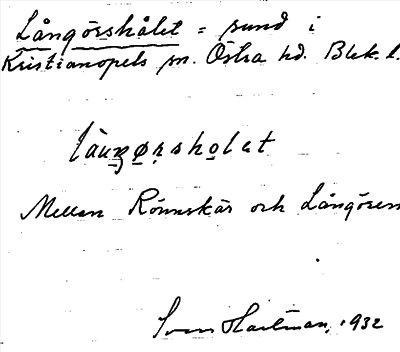 Långörshålet = sund i
Kristianopels sn. Östra hd. Blek. l.
Mellan Rönnskär och Långören
Sven Hartman, 1932